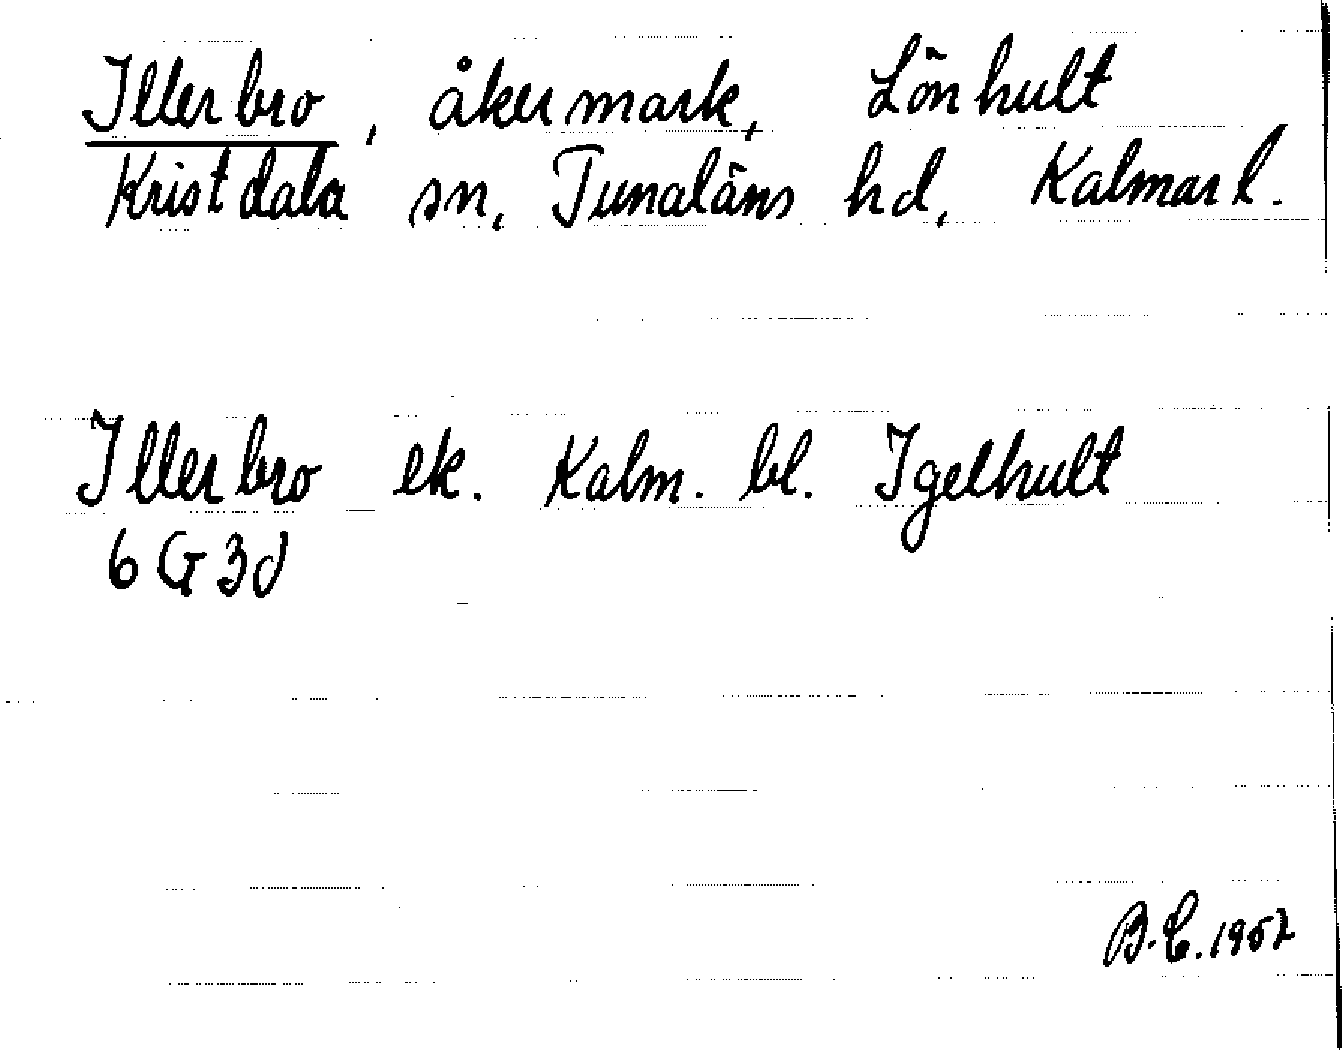 Illerbro, åkermark, Lönhult
Kristdala sn, Tunaläns hd, Kalmar l.
Illerbro ek. Kalm. bl. Igelhult
6G3d
B.E. 1957